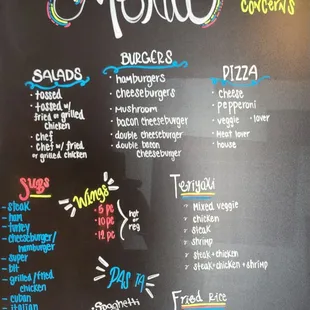 Menu
concerns
SALADS
• tossed
• tossed w/
fried or grilled
chicken
• chef
• chef w/ fried
or grilled chicken
BURGERS
• hamburgers
• cheeseburgers
• mushroom
• bacon cheeseburger
• double cheeseburger
• double bacon
cheeseburger
PIZZA
• cheese
• pepperoni
• veggie • lover
• meat lover
• house
Subs
- steak
- ham
- turkey
- cheeseburger/
hamburger
- super
- blt
- grilled/fried
chicken
- cuban
- italian
Wings
• 5 pc
• 10 pc
• 12 pc
hot
or
reg
PASTA
• Spaghetti
Teriyaki
mixed veggie
chicken
steak
shrimp
steak + chicken
steak + chicken + shrimp
Fried Rice